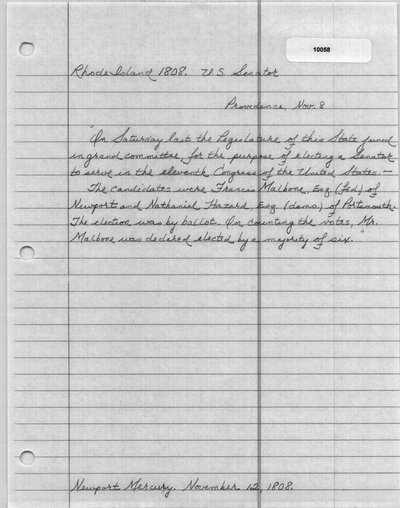 10058
Rhode Island 1808. U.S. Senator
Providence, Nov. 8
"On Saturday last the Legislature of this State joined
in grand committee, for the purpose of electing a Senator
to serve in the eleventh Congress of the United States. —
The candidates were Francis Malbone, Esq. (fed.) of
Newport and Nathaniel Hazard, Esq. (demo.) of Portsmouth.
The election was by ballot. On counting the votes, Mr.
Malbone was declared elected by a majority of six."
Newport Mercury. November 12, 1808.